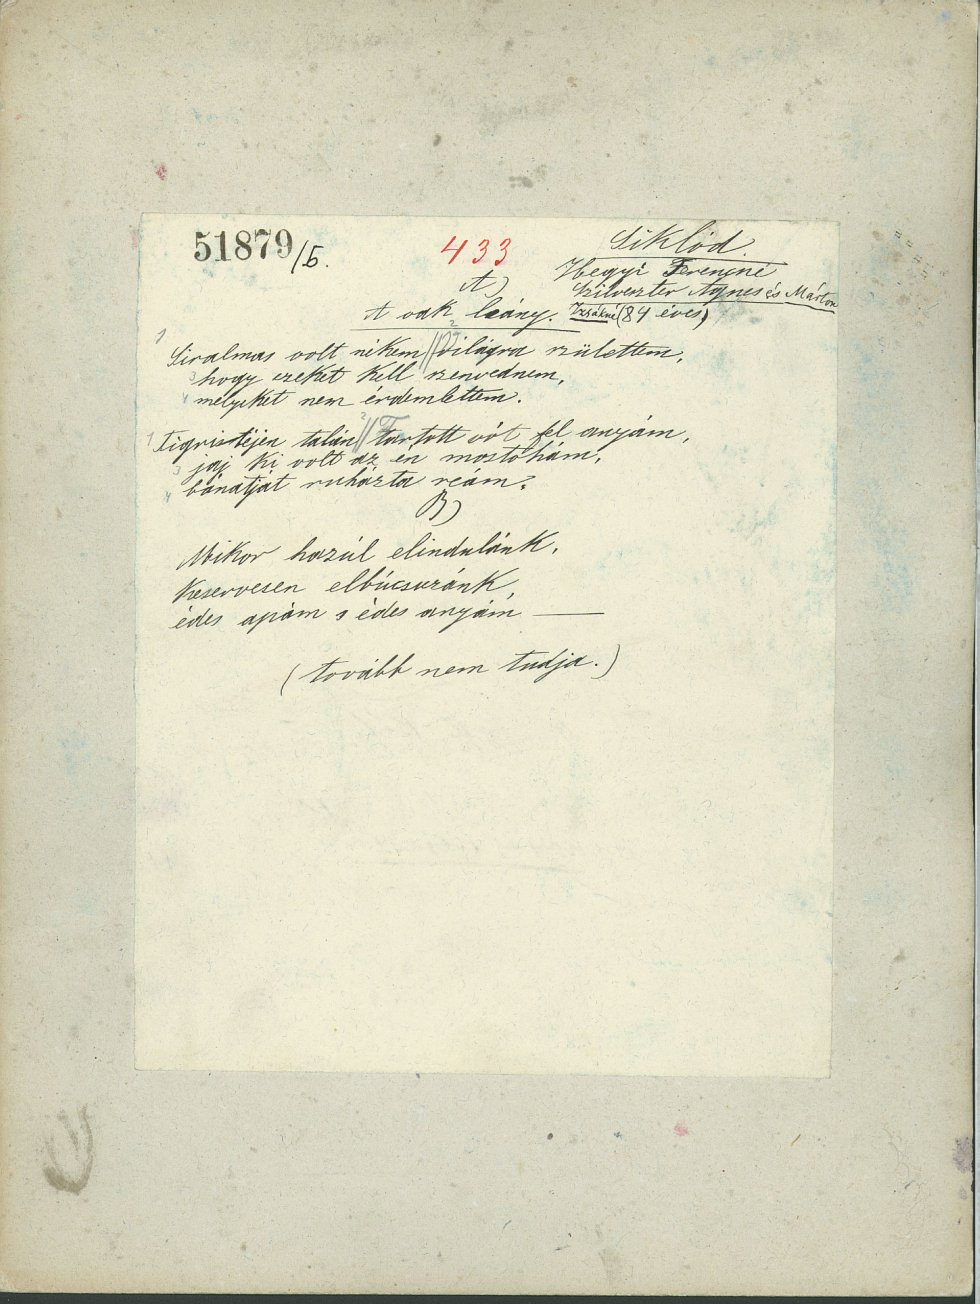 51879/5.
433
Siklód.
Hegyi Ferencné
Szilveszter Ágnes és Márton
Izsákné (84 éves)
A)
A vak leány.
1 Siralmas volt nékem // 2 Világra születtem,
3 hogy ezeket kell szenvednem,
4 melyeket nem érdemlettem.
1 Tigris téjen talán // 2 Tartott vót fel anyám,
3 jaj ki volt az én mostohám,
4 bánatját ruházta reám.
B)
Mikor hazúl elindulánk,
keservesen elbúcsuzánk,
édes apám s édes anyám ——
(tovább nem tudja.)